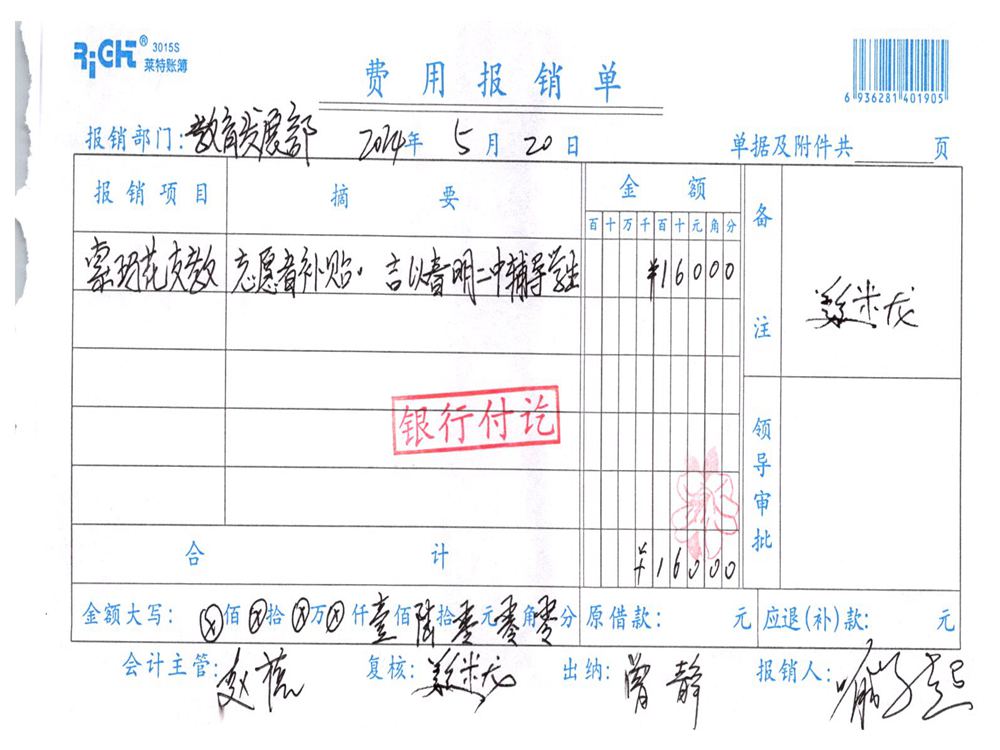 RiGHT® 3015S
莱特账簿
费用报销单
6 936281 401905
报销部门：教育发展部 2014年 5月 20日 单据及附件共 页
报销项目 摘要 金额 备注
百十万千百十元角分
索玛花支教 志愿者补贴. 吉以春明二中辅导学生 ¥16000
姜米龙
银行付讫
领导审批
合计 ¥16000
金额大写：ⓧ佰ⓧ拾ⓧ万ⓧ仟壹佰陆拾零元零角零分 原借款： 元 应退(补)款： 元
会计主管： 复核： 出纳：曾静 报销人：